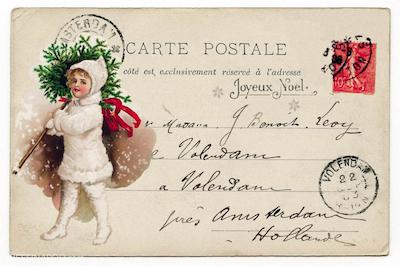 AMSTERDAM
CARTE POSTALE
côté est, exclusivement réservé à l'adresse
Joyeux Noel
Madame J. Benoit Levy
Volendam
a Volendam
près Amsterdam
Hollande
VOLENDAM
22